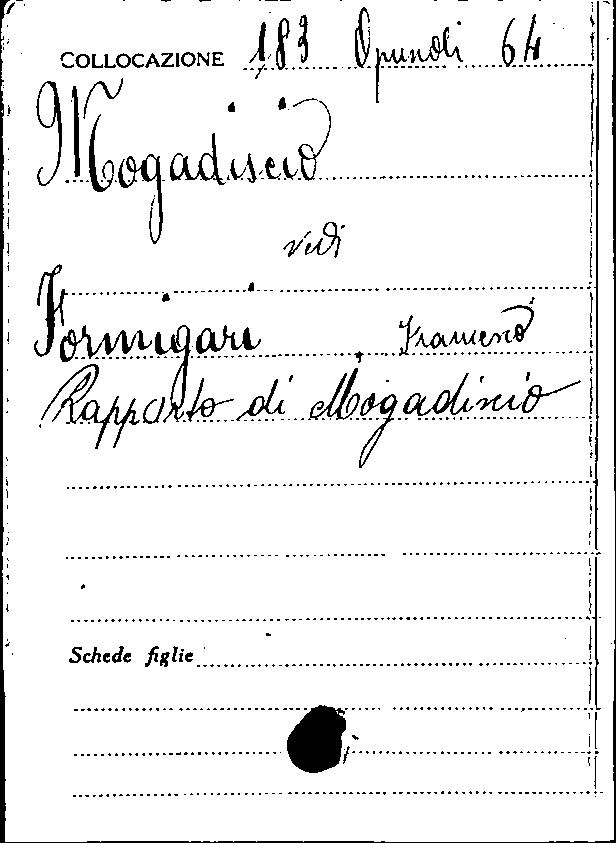 COLLOCAZIONE 183 Opuscoli 64
Mogadiscio
vedi
Formigari Francesco
Rapporto di Mogadiscio
Schede figlie